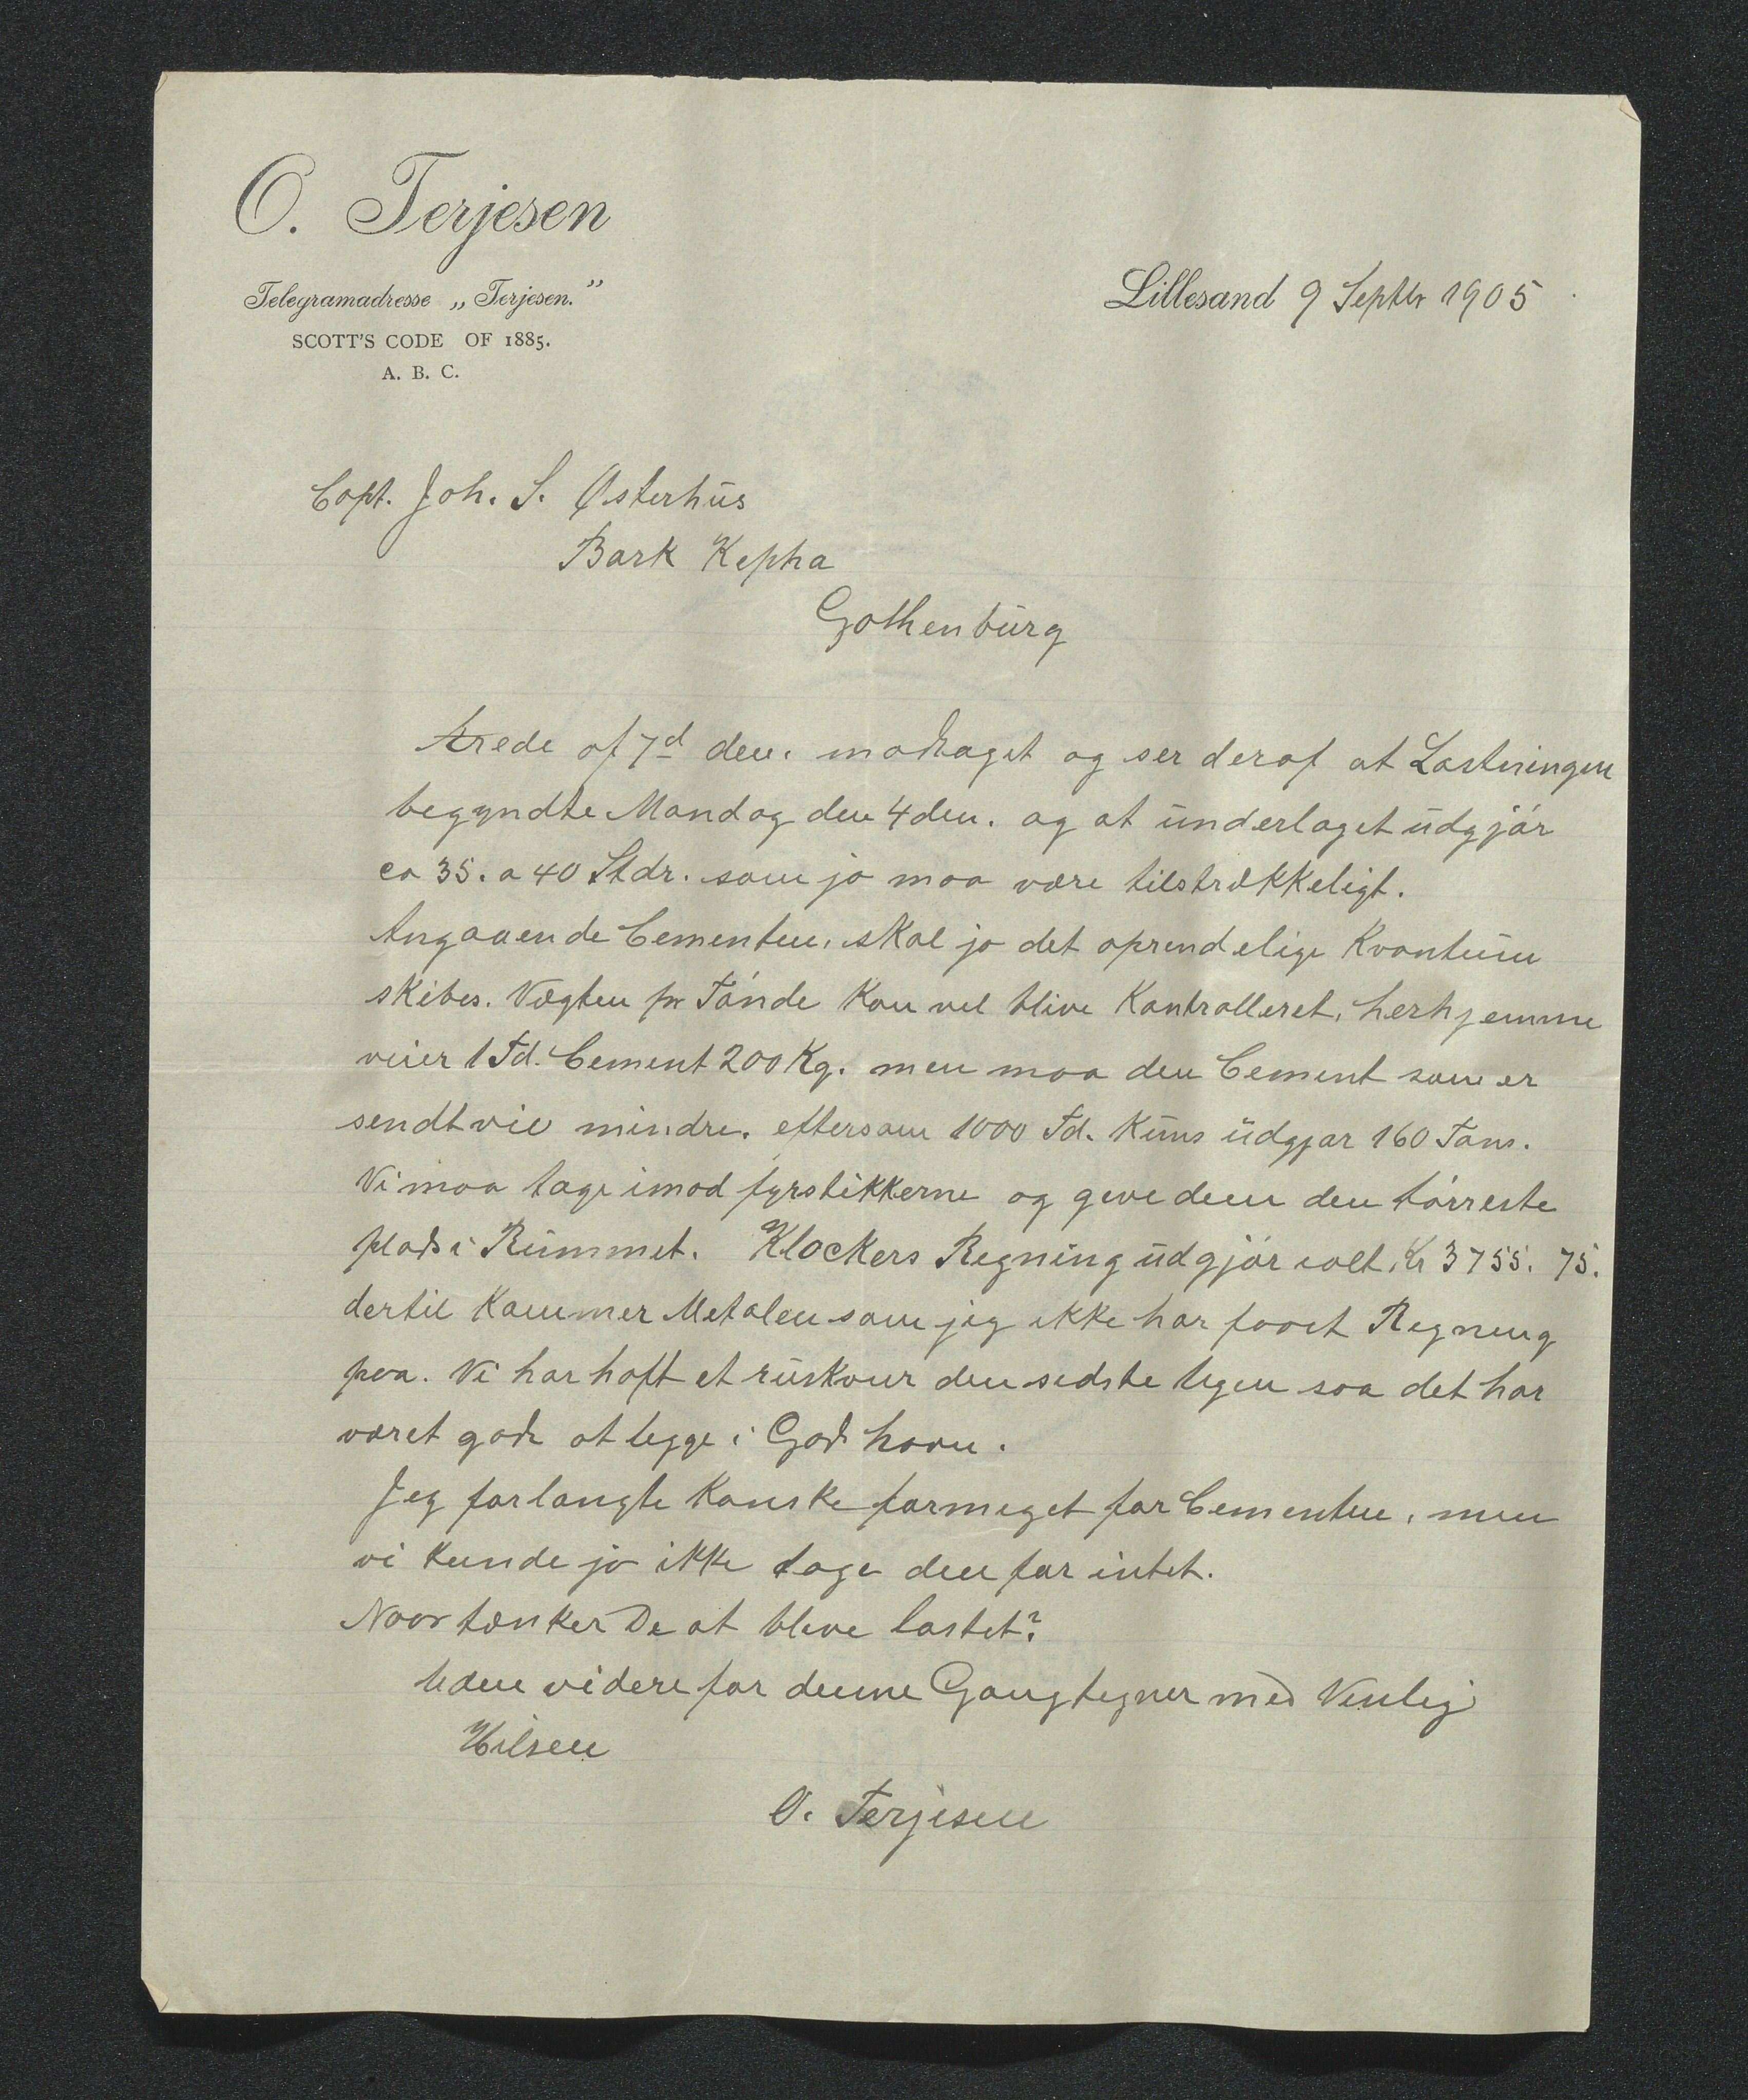 O. Terjesen
Telegramadresse „Terjesen."
SCOTT'S CODE OF 1885.
A. B. C.
Lillesand 9 Septbr 1905
Capt. Joh. S. Østerhus
Bark Kepha
Gothenburg
Ærede af 7d den. modtaget og ser deraf at Lastningen
begyndte Mandag den 4den. og at underlaget udgjør
ca 35. a 40 Stdr. som jo maa være tilstrækkeligt.
Angaaende Cementen, skal jo det oprendelige Kvantum
skibes. Vægten pr Tønde kan vel blive Kontrolleret, herhjemme
veier 1 Td. Cement 200 Kg. men maa den Cement som er
sendt vie mindre. eftersom 1000 Td. Kuns udgjør 160 Tons.
Vi maa tage imod fyrstikkerne og give dem den tørreste
plads i Rummet. Klockers Regning udgjør ialt, Kr 3755. 75.
dertil Kommer Metalen som jeg ikke har faaet Regning
paa. Vi har haft et ruskveir den sidste Ugen saa det har
været godt at ligge i God havn.
Jeg forlangte Kanske formeget for Cementen, men
vi Kunde jo ikke tage den for intet.
Naar tænker De at blive lastet?
Uden videre for denne Gang tegner med Venlig
Hilsen
O. Terjesen